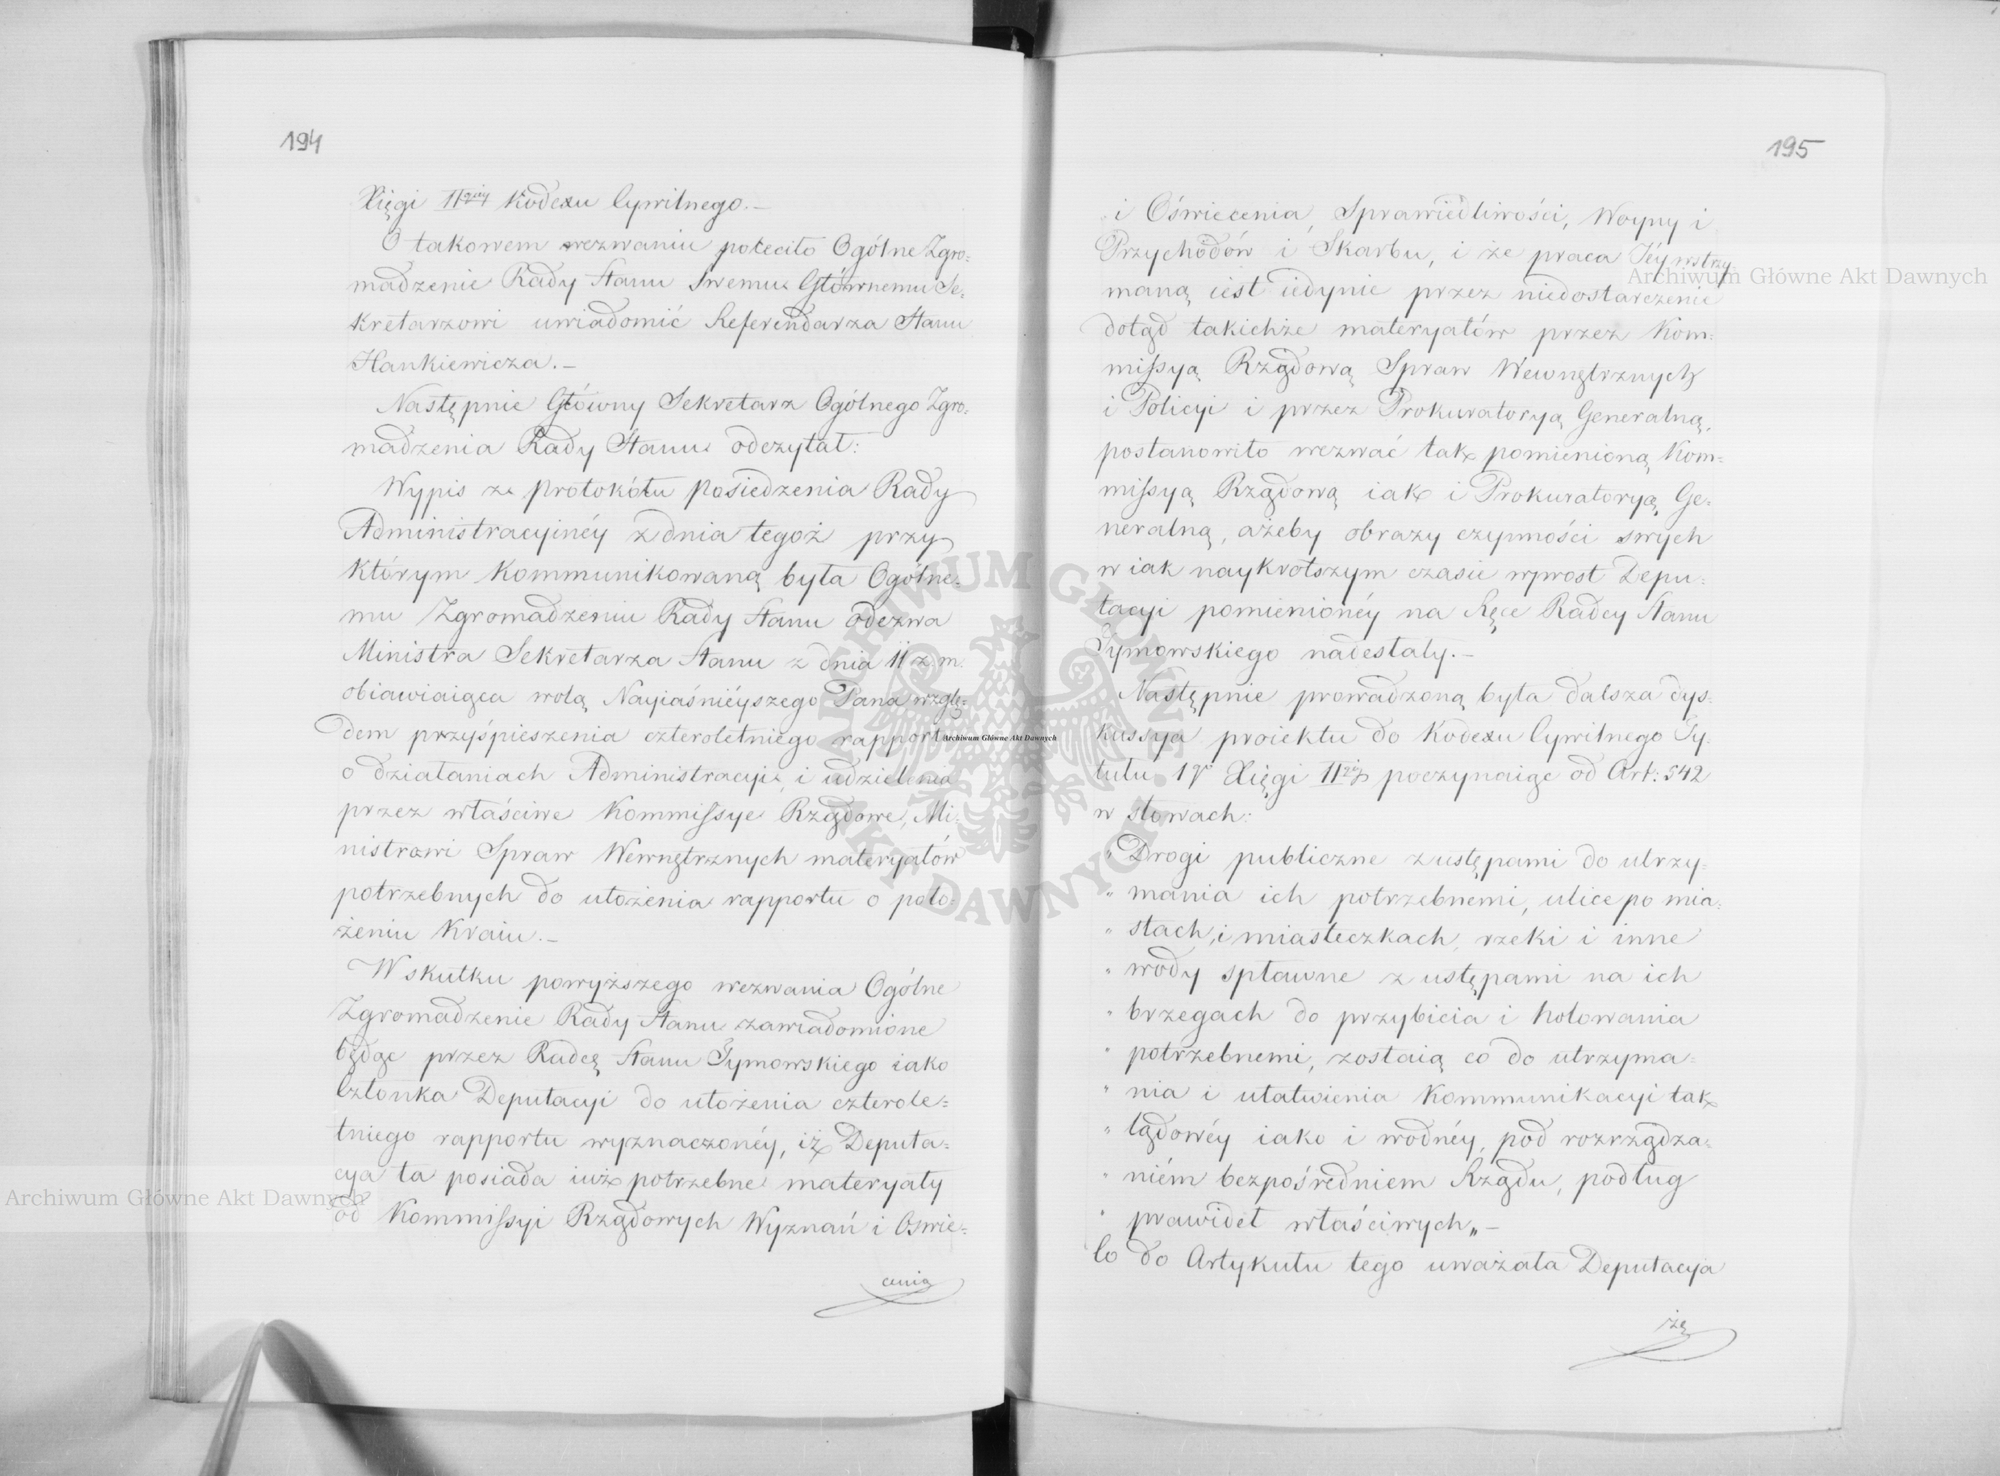 194
Xięgi IIgiéy Kodexu Cywilnego.–
O takowem wezwaniu poleciło Ogólne Zgro=
madzenie Rady Stanu Swemu Głównemu Se=
kretarzowi uwiadomić Referendarza Stanu
Hankiewicza.–
Następnie Główny Sekretarz Ogólnego Zgro=
madzenia Rady Stanu odczytał:
Wypis z protokółu posiedzenia Rady
Administracyinéy z dnia tegoż przy
którym kommunikowaną była Ogólne=
mu Zgromadzeniu Rady Stanu odezwa
Ministra Sekretarza Stanu z dnia 11 z. m.
obiawiaiąca wolą Nayiaśniéyszego Pana wzglę=
dem przyśpieszenia czteroletniego rapportu
o działaniach Administracyi, i udzielenia
przez właściwe Kommissye Rządowe, Mi=
nistrowi Spraw Wewnętrznych materyałów
potrzebnych do ułożenia rapportu o poło=
żeniu Kraiu.–
W skutku powyższego wezwania Ogólne
Zgromadzenie Rady Stanu zawiadomione
będąc przez Radcę Stanu Tymowskiego iako
Członka Deputacyi do ułożenia czterole=
tniego rapportu wyznaczonéy, iż Deputa=
cya ta posiada iuż potrzebne materyały
od Kommissyi Rządowych Wyznań i Oświe=
cenia
195
i Oświecenia, Sprawiedliwości, Woyny i
Przychodów i Skarbu, i że praca Iéy wstrzy
maną iest iedynie przez niedostarczenie
dotąd takichże materyałów przez Kom=
missyą Rządową Spraw Wewnętrznych
i Policyi i przez Prokuratoryą Generalną,
postanowiło wezwać tak pomienioną Kom=
missyą Rządową iak i Prokuratoryą Ge=
neralną, ażeby obrazy czynności swych
w iak naykrótszym czasie wprost Depu=
tacyi pomienionéy na Ręce Radcy Stanu
Tymowskiego nadesłały.–
Następnie prowadzoną była dalsza dys=
kussya proiektu do Kodexu Cywilnego Ty=
tułu 1go Xięgi IIgiéy poczynaiąc od Art: 542
w słowach:
„ Drogi publiczne z ustępami do utrzy=
„ mania ich potrzebnemi, ulice po mia=
„ stach, i miasteczkach, rzeki i inne
„ wody spławne z ustępami na ich
„ brzegach do przybicia i holowania
„ potrzebnemi, zostaią co do utrzyma=
„ nia i ułatwienia Kommunikacyi tak
„ lądowéy iako i wodnéy, pod rozrządza=
„ niém bezpośredniem Rządu, podług
„ prawideł właściwych„–
Co do Artykułu tego uważała Deputacya
że
Archiwum Główne Akt Dawnych
Archiwum Główne Akt Dawnych
Archiwum Główne Akt Dawnych
ARCHIWUM GŁÓWNE AKT DAWNYCH